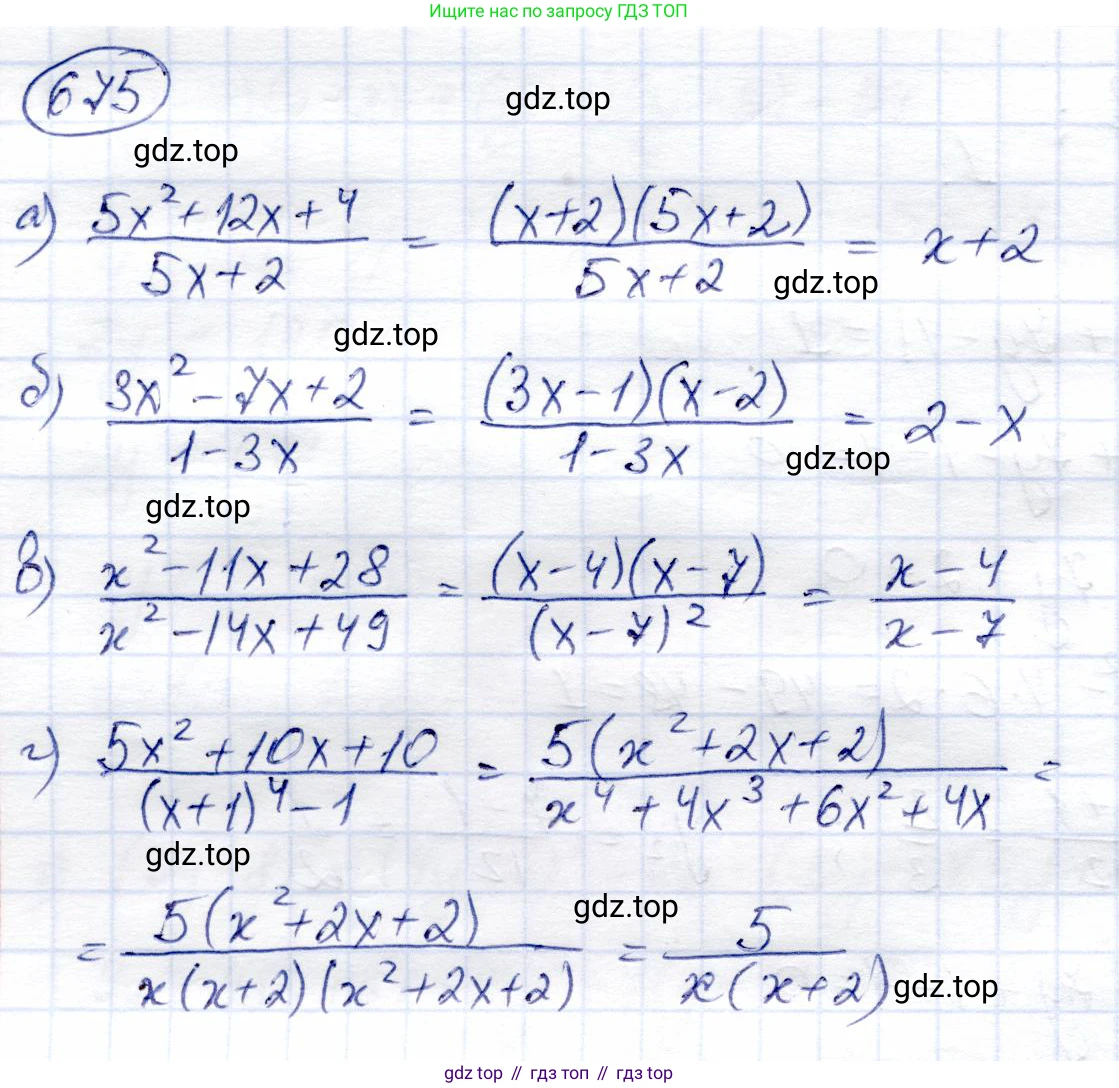 Ищите нас по запросу ГДЗ ТОП
675
gdz.top
gdz.top
а) (5x²+12x+4)/(5x+2) = ((x+2)(5x+2))/(5x+2) = x+2
gdz.top
gdz.top
б) (3x²-7x+2)/(1-3x) = ((3x-1)(x-2))/(1-3x) = 2-x
gdz.top
gdz.top
в) (x²-11x+28)/(x²-14x+49) = ((x-4)(x-7))/((x-7)²) = (x-4)/(x-7)
г) (5x²+10x+10)/((x+1)⁴-1) = (5(x²+2x+2))/(x⁴+4x³+6x²+4x) =
gdz.top
= (5(x²+2x+2))/(x(x+2)(x²+2x+2)) = 5/(x(x+2))
gdz.top
gdz.top
gdz top // гдз топ // гдз top